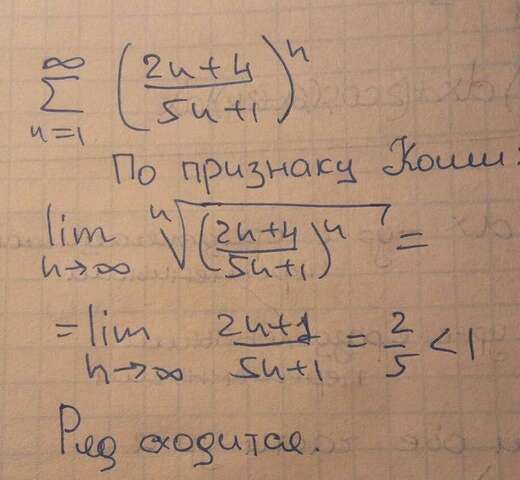 ∞
∑ ((2n+4)/(5n+1))ⁿ
n=1
По признаку Коши:
lim ⁿ√(((2n+4)/(5n+1))ⁿ) =
n→∞
= lim (2n+1)/(5n+1) = 2/5 < 1
n→∞
Ряд сходится.